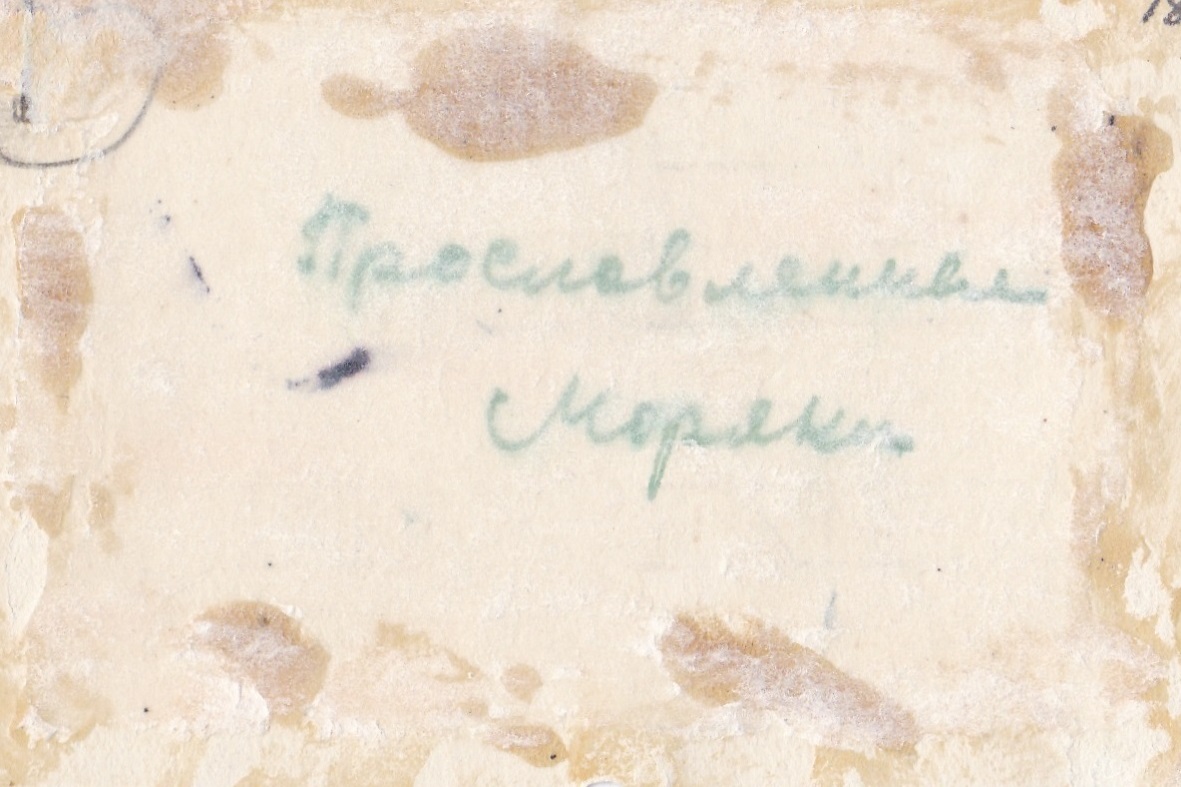 Прославленные
Моряки